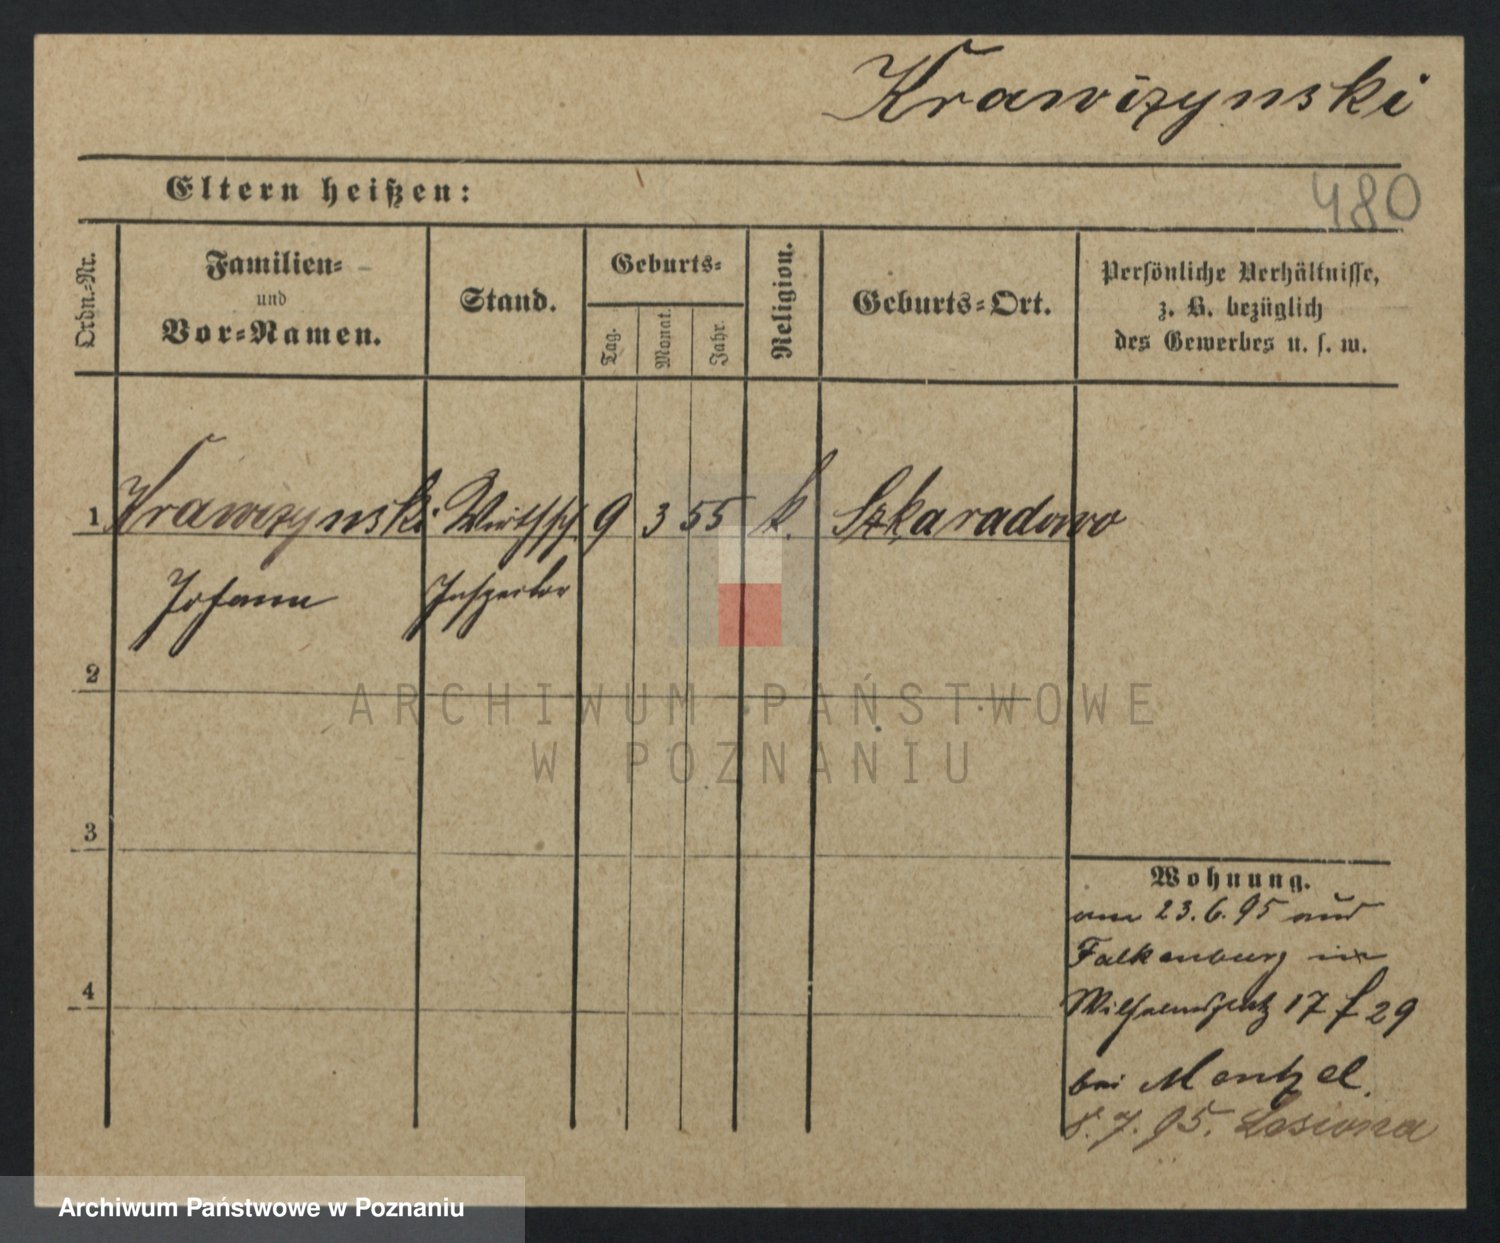 Krawczynski
Eltern heißen:
480
Ordn.-Nr.
Familien-
und
Vor-Namen.
Stand.
Geburts-
Tag.
Monat.
Jahr.
Religion.
Geburts-Ort.
Persönliche Verhältnisse,
z. B. bezüglich
des Gewerbes u. s. w.
1 Krawczynski Wirthsch. 9 3 55 k. Szkaradowo
Johann Inspector
2
ARCHIWUM PAŃSTWOWE
W POZNANIU
3
4
Wohnung.
am 23.6.95 aus
Falkenburg in
Wilhelmsplatz 17 f 29
bei Mentzel.
8.7.95.
Archiwum Państwowe w Poznaniu